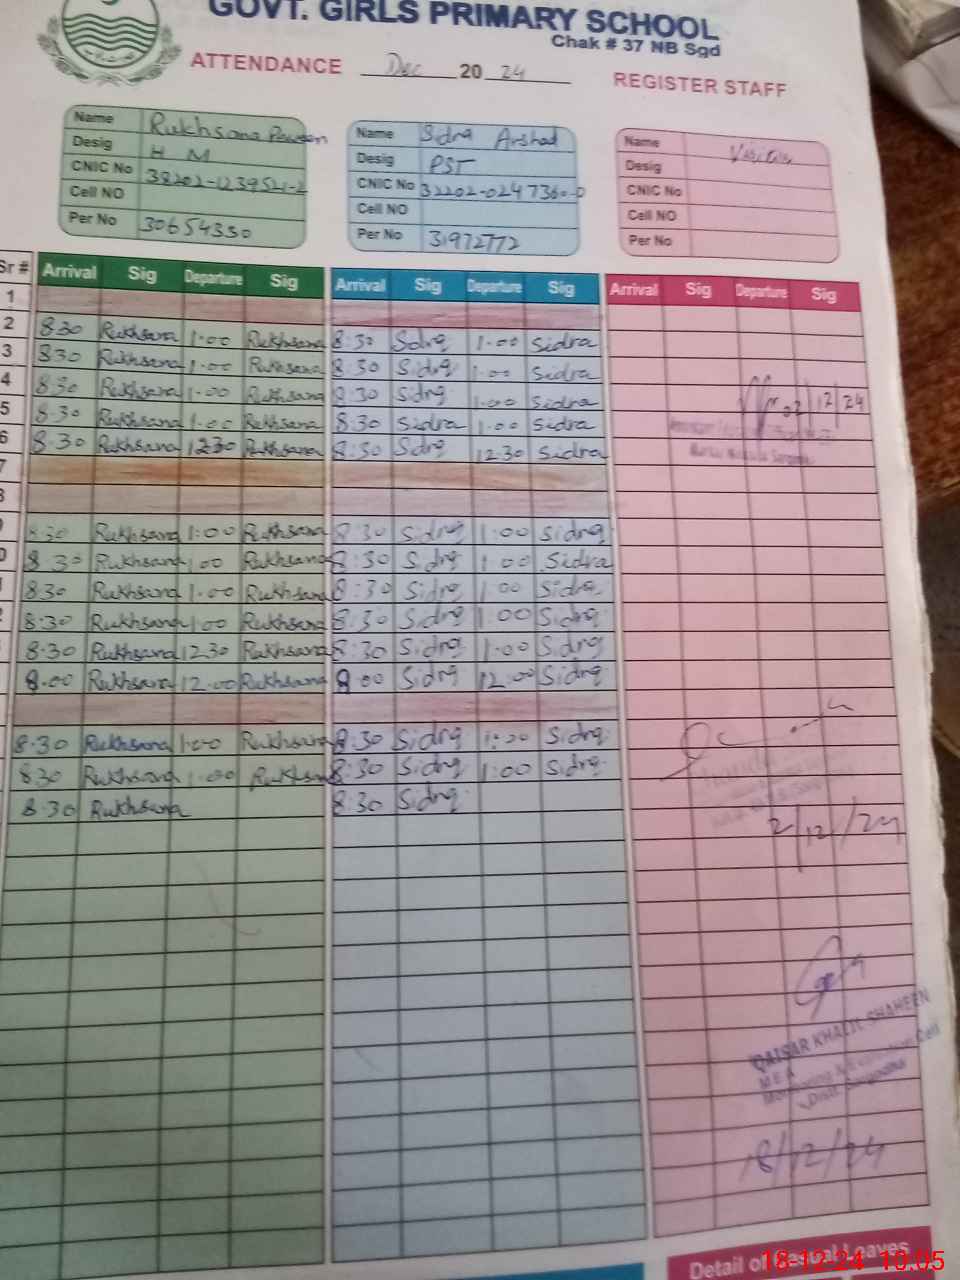 GOVT. GIRLS PRIMARY SCHOOL
Chak # 37 NB Sgd
ATTENDANCE Dec 20 24 REGISTER STAFF
Name Rukhsana Parveen
Desig H M
CNIC No
Cell NO
Per No 30654330
Name Sidra Arshad
Desig PST
CNIC No 32202-0247360-0
Cell NO
Per No 31972772
Name
Desig
CNIC No
Cell NO
Per No
Sr # Arrival Sig Departure Sig Arrival Sig Departure Sig Arrival Sig Departure Sig
1
2 8:30 Rukhsana 1:00 Rukhsana 8:30 Sidra 1:00 Sidra
3 8:30 Rukhsana 1:00 Rukhsana 8:30 Sidra 1:00 Sidra
4 8:30 Rukhsana 1:00 Rukhsana 8:30 Sidra 1:00 Sidra 02/12/24
5 8:30 Rukhsana 1:00 Rukhsana 8:30 Sidra 1:00 Sidra
6 8:30 Rukhsana 12:30 Rukhsana 8:30 Sidra 12:30 Sidra
7
8:30 Rukhsana 1:00 Rukhsana 8:30 Sidra 1:00 Sidra
8:30 Rukhsana 1:00 Rukhsana 8:30 Sidra 1:00 Sidra
8:30 Rukhsana 1:00 Rukhsana 8:30 Sidra 1:00 Sidra
8:30 Rukhsana 1:00 Rukhsana 8:30 Sidra 1:00 Sidra
8:30 Rukhsana 12:30 Rukhsana 8:30 Sidra 1:00 Sidra
8:00 Rukhsana 12:00 Rukhsana 8:00 Sidra 12:00 Sidra
8:30 Rukhsana 1:00 Rukhsana 8:30 Sidra 1:00 Sidra
8:30 Rukhsana 1:00 Rukhsana 8:30 Sidra 1:00 Sidra
8:30 Rukhsana 8:30 Sidra
2/12/24
QAISAR KHALIL SHAHEEN
M E A
Monitoring & Evaluation Cell
Distt. Sargodha
18/12/24
Detail of Casual Leaves
18-12-24 10:05